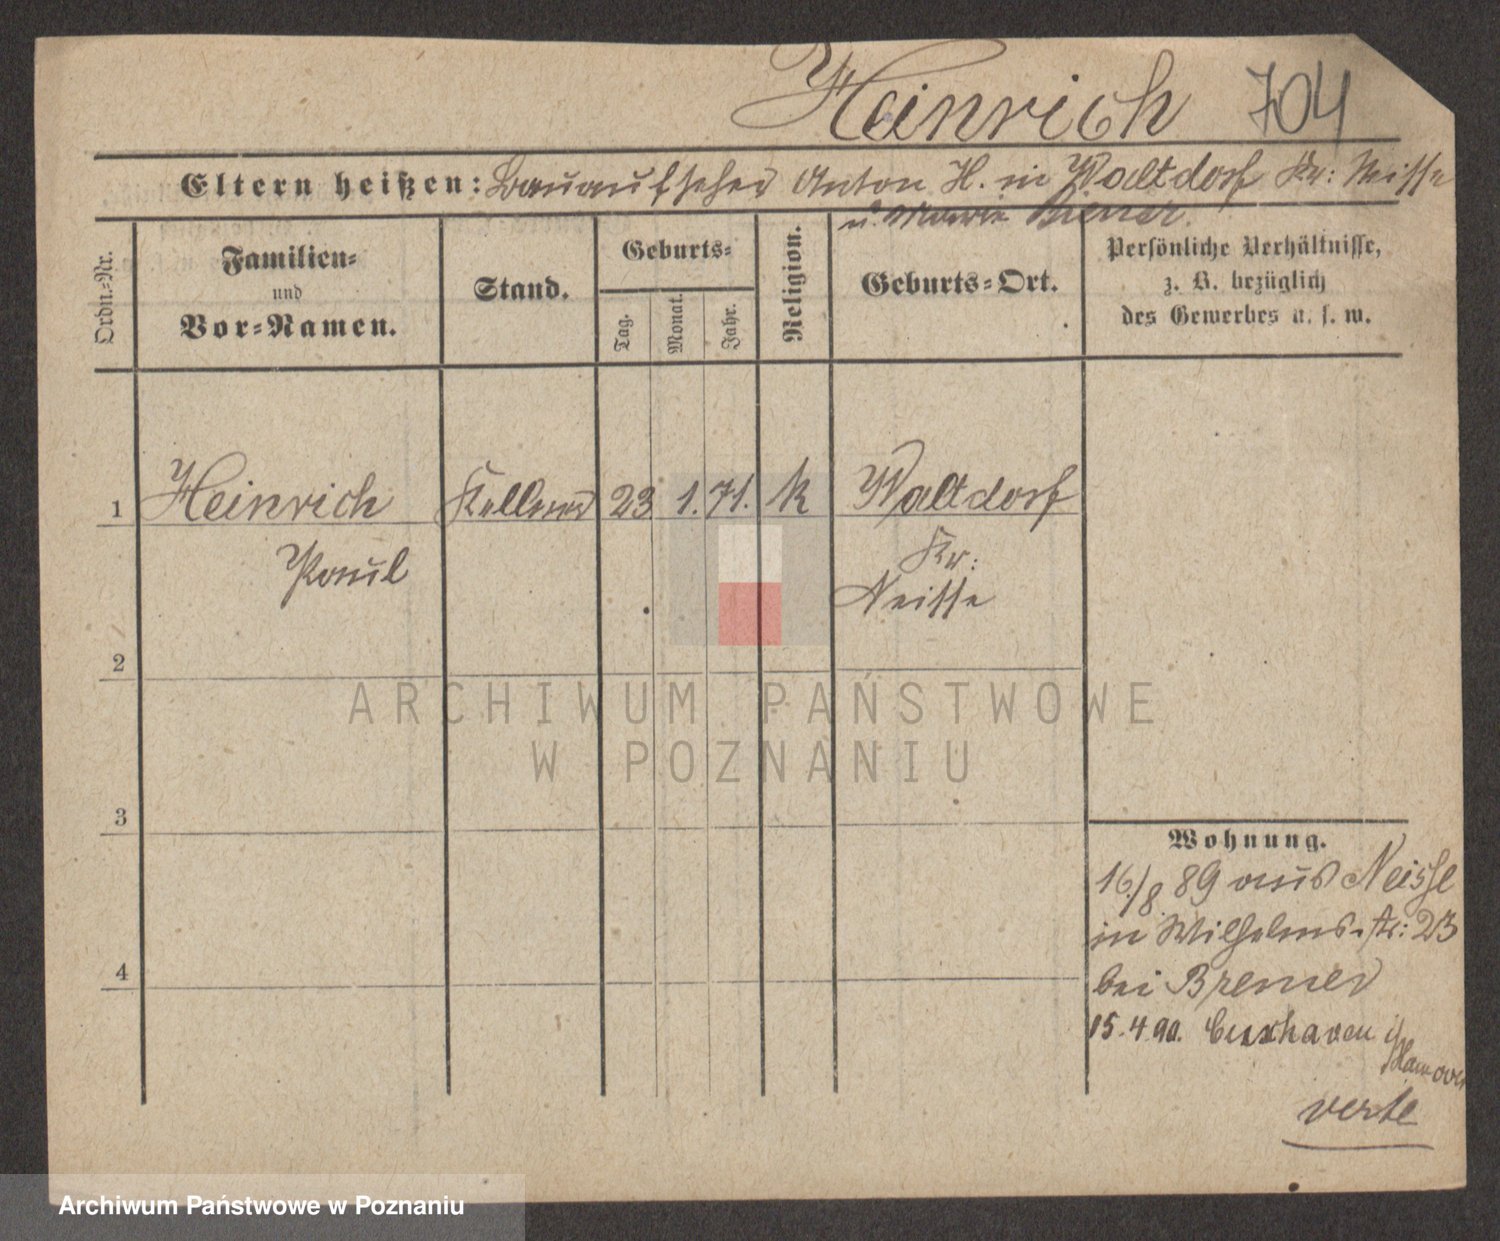 Heinrich 704
Eltern heißen: Bauaufseher Anton H. in Waltdorf Kr: Neisse
u. Marie Biener.
Ordn.-Nr.
Familien-
und
Vor-Namen.
Stand.
Geburts-
Tag.
Monat.
Jahr.
Religion.
Geburts-Ort.
Persönliche Verhältnisse,
z. B. bezüglich
des Gewerbes u. s. w.
1 Heinrich Kellner 23 1. 71. k Waltdorf
Paul Kr:
Neisse
2
3
4
ARCHIWUM PAŃSTWOWE
W POZNANIU
Wohnung.
16./8. 89 aus Neisse
in Wilhelms-str: 23
bei Bremer
15.4.90. Cuxhaven i/
Hannover
verte
Archiwum Państwowe w Poznaniu